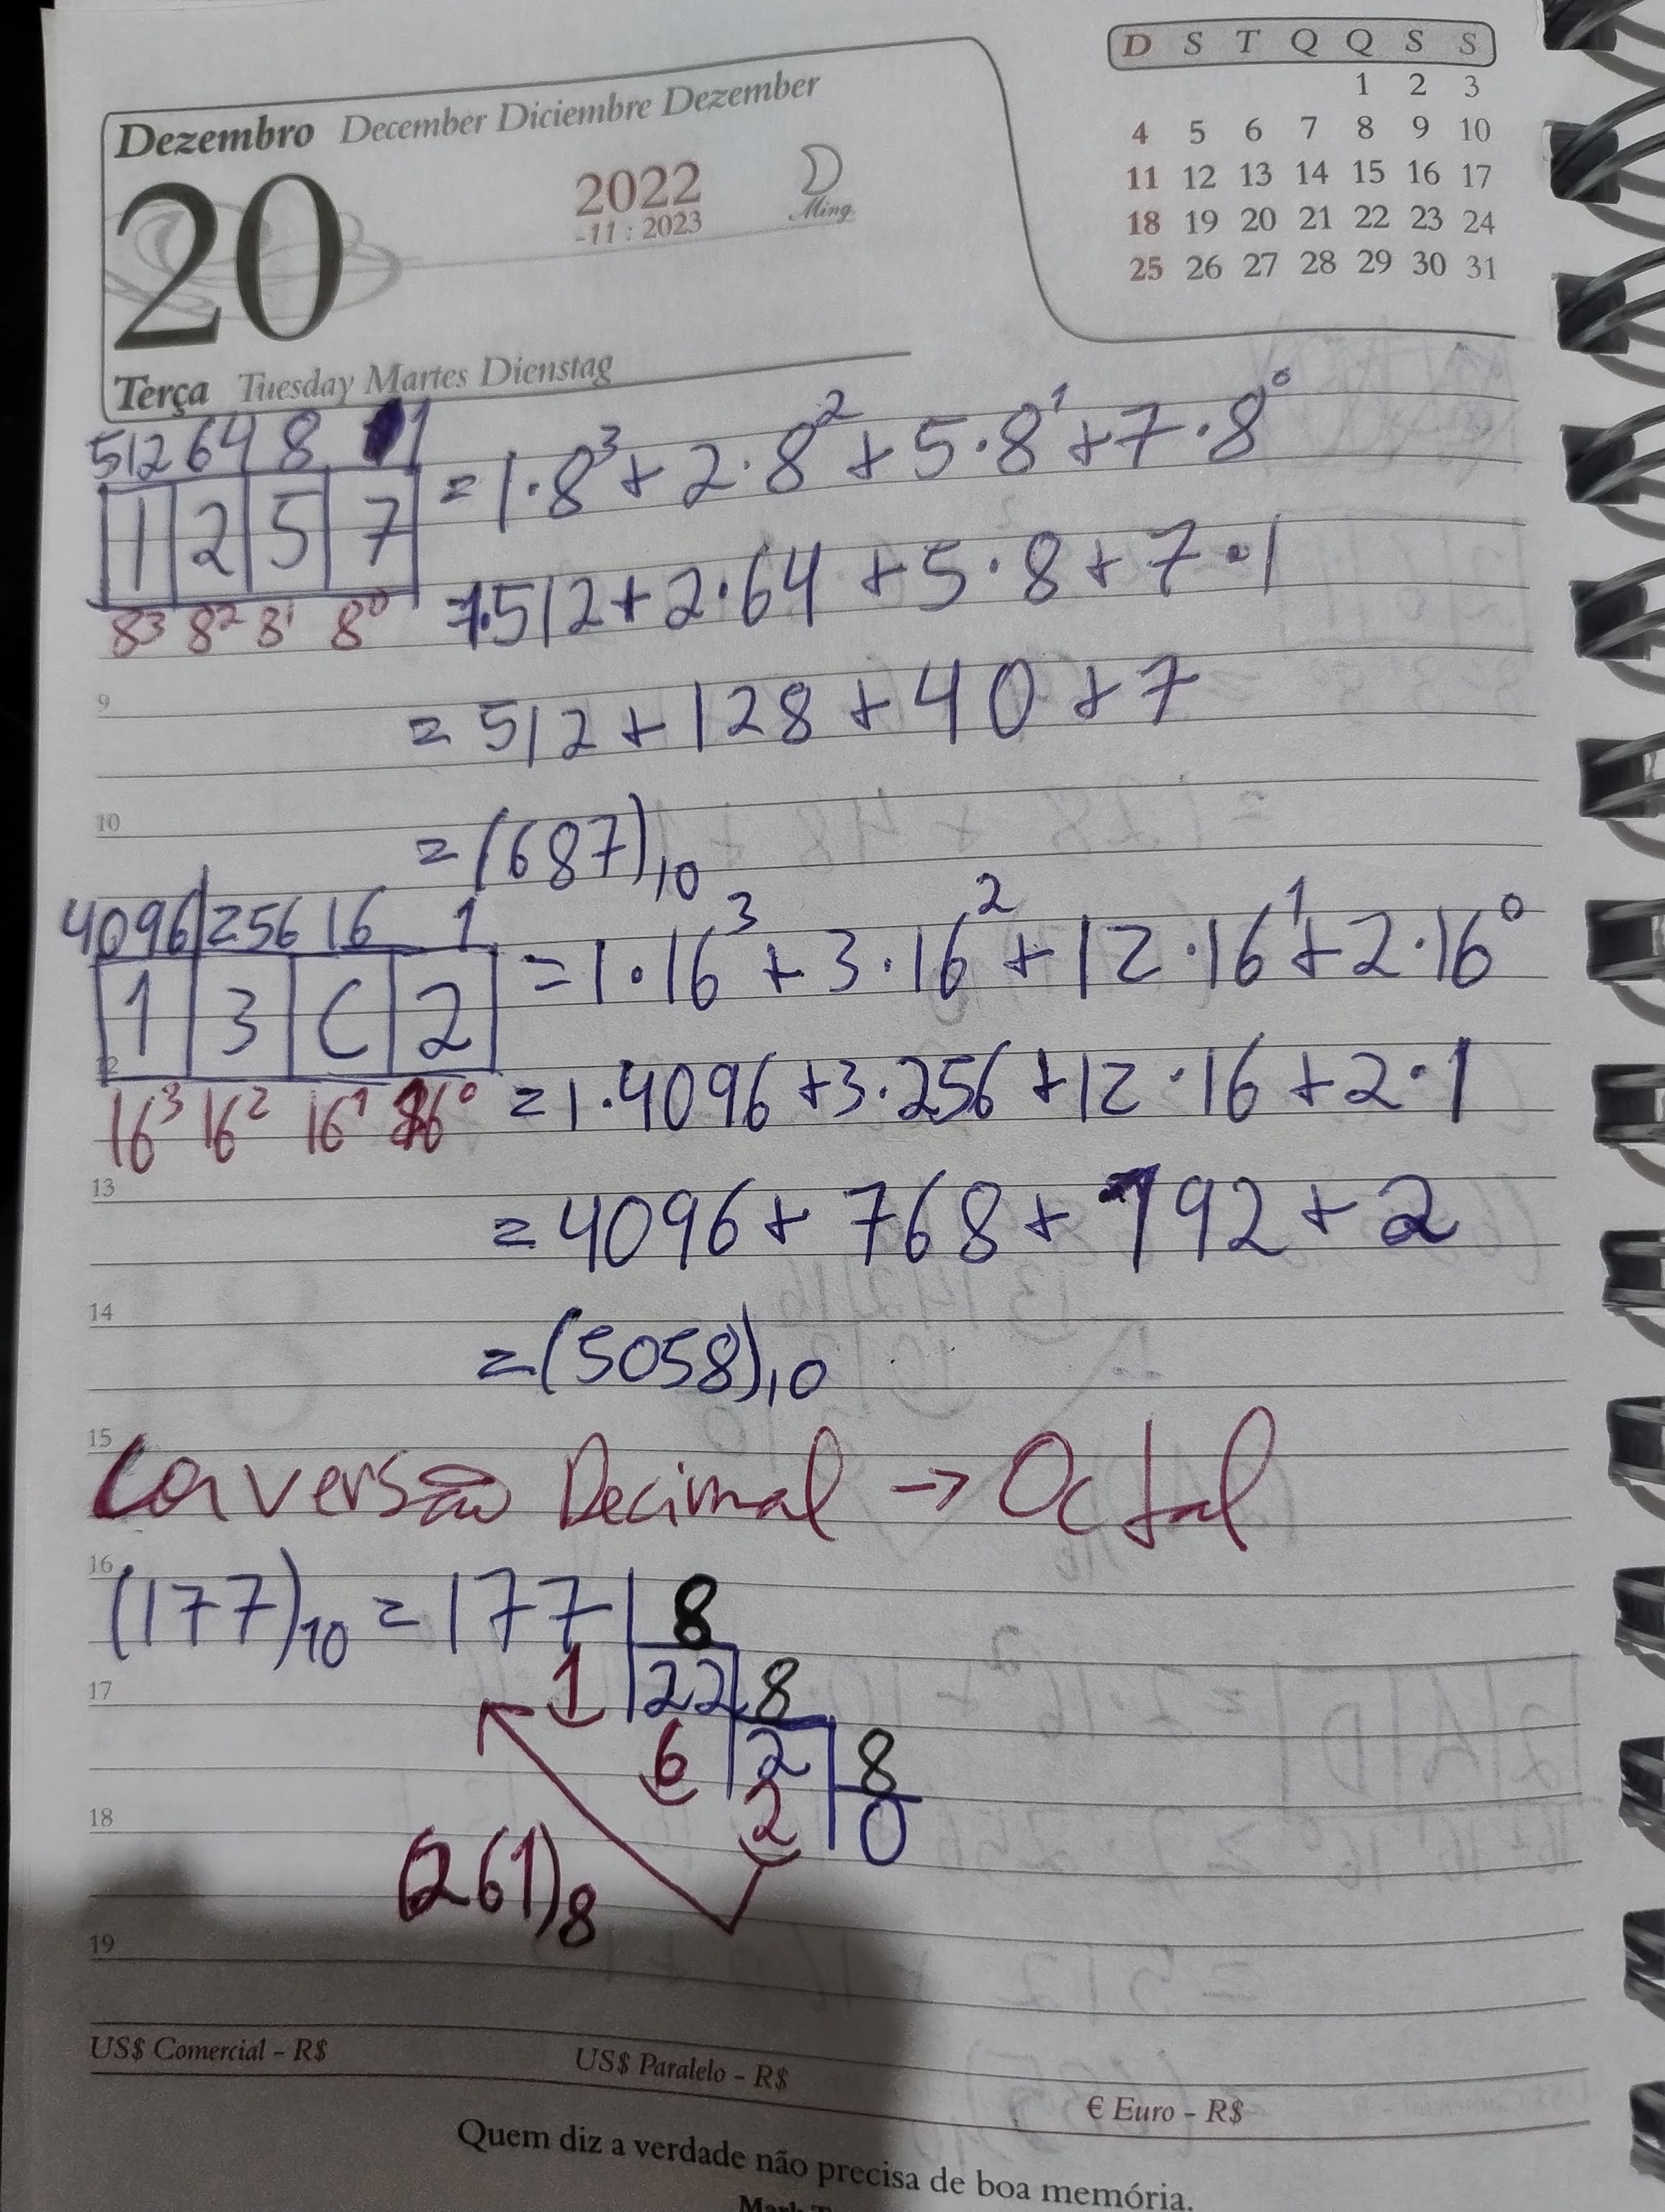 Dezembro December Diciembre Dezember
20
2022
-11 : 2023
Ming.
Terça Tuesday Martes Dienstag
D S T Q Q S S
1 2 3
4 5 6 7 8 9 10
11 12 13 14 15 16 17
18 19 20 21 22 23 24
25 26 27 28 29 30 31
512 64 8 1
1 2 5 7 = 1·8³ + 2·8² + 5·8¹ + 7·8⁰
8³ 8² 8¹ 8⁰ = 1·512 + 2·64 + 5·8 + 7·1
9
= 512 + 128 + 40 + 7
10
= (687)₁₀
4096 256 16 1
1 3 C 2 = 1·16³ + 3·16² + 12·16¹ + 2·16⁰
12
16³ 16² 16¹ 16⁰ = 1·4096 + 3·256 + 12·16 + 2·1
13
= 4096 + 768 + 192 + 2
14
= (5058)₁₀
15
Conversão Decimal → Octal
16
(177)₁₀ = 177 8
17
1 22 8
6 2 8
18
2 0
(261)₈
19
US$ Comercial - R$ US$ Paralelo - R$ € Euro - R$
Quem diz a verdade não precisa de boa memória.
Mark